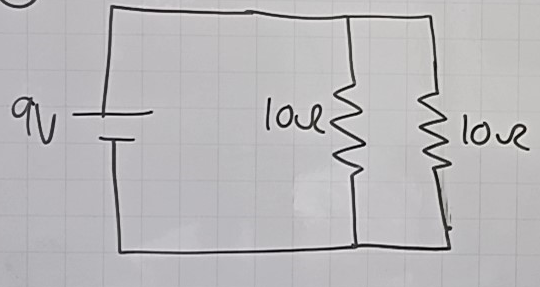 9V
10Ω
10Ω